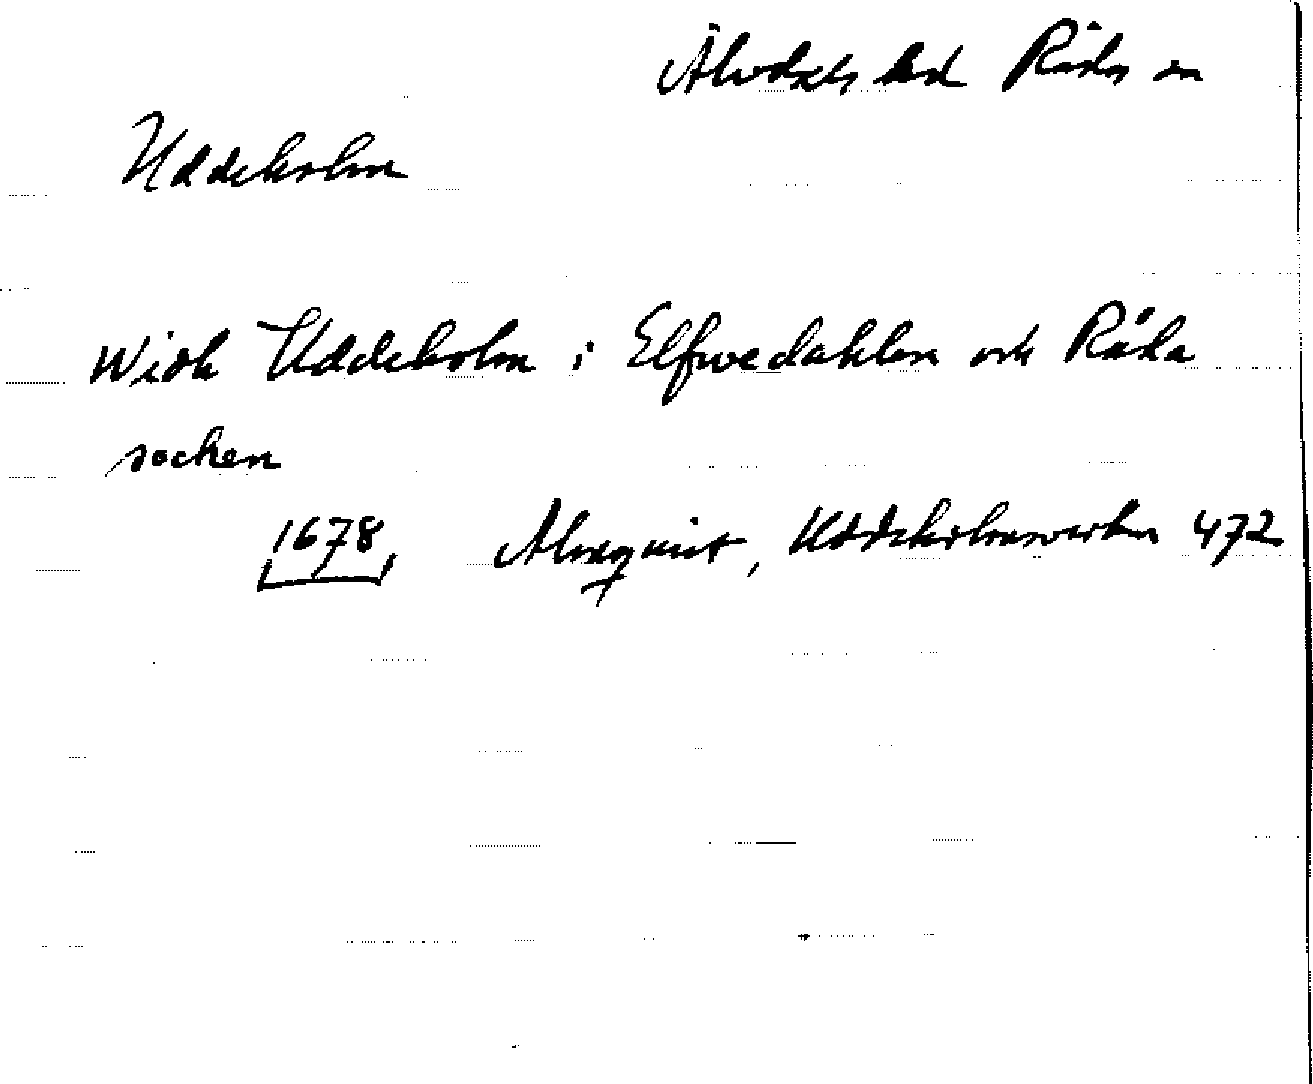 Älvdals hd Råda sn
Uddeholm
Widh Uddeholm i Elfwedahlen och Råda
socken
1678, Almquist, Uddeholmsverken 472